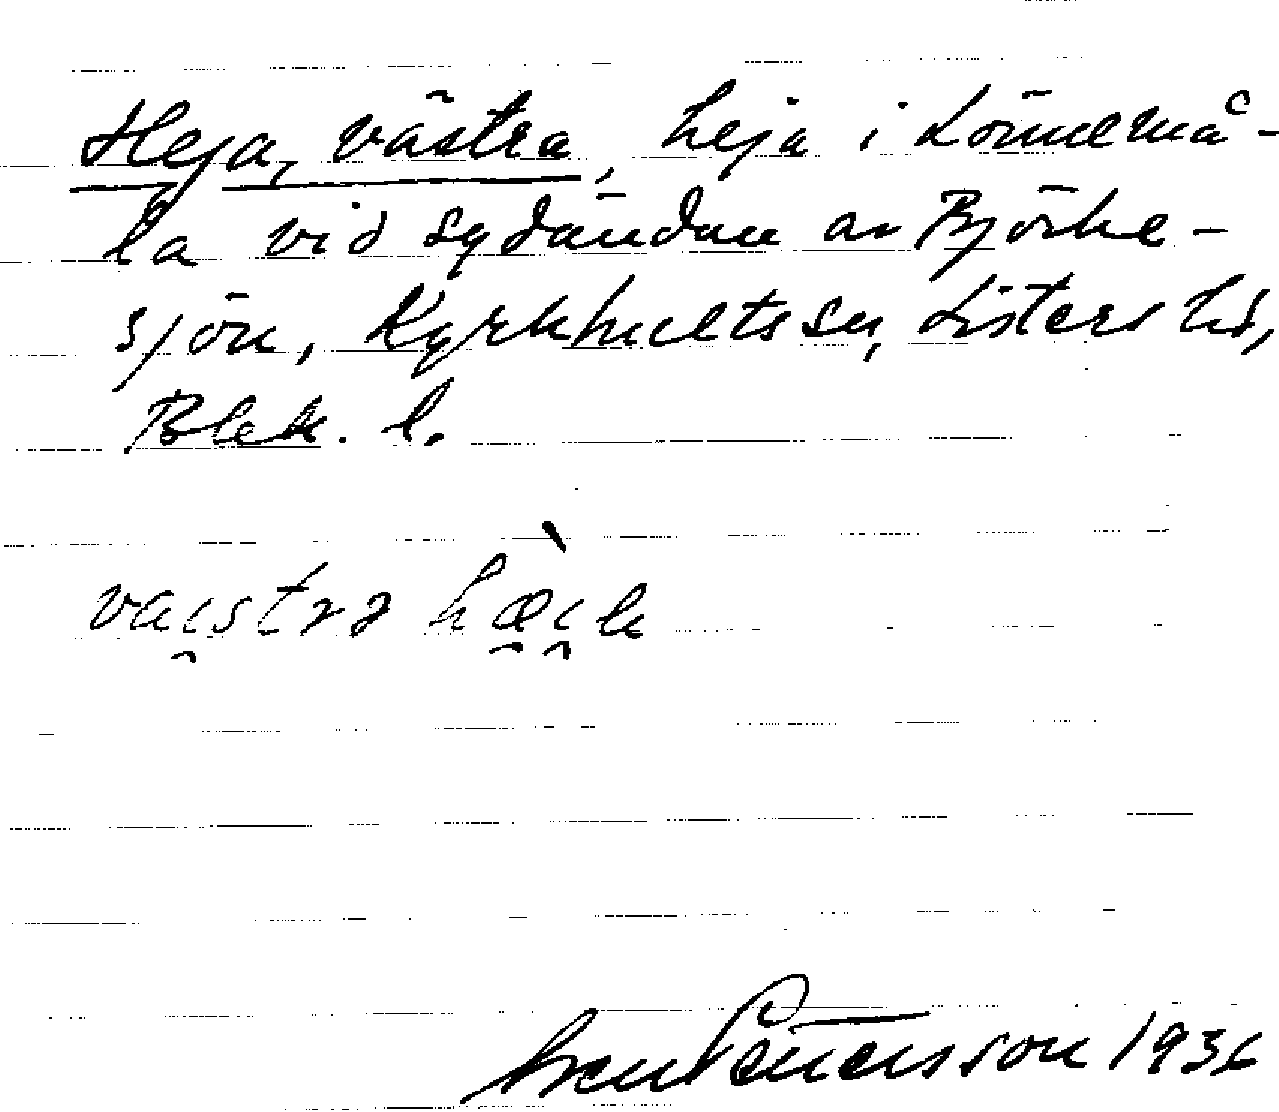 Heja, västra, heja i Lönnemå-
la vid sydändan av Björke-
sjön, Kyrkhults sn, Listers hd,
Blek. l.
vaistrə hæi
Sven Benson 1936